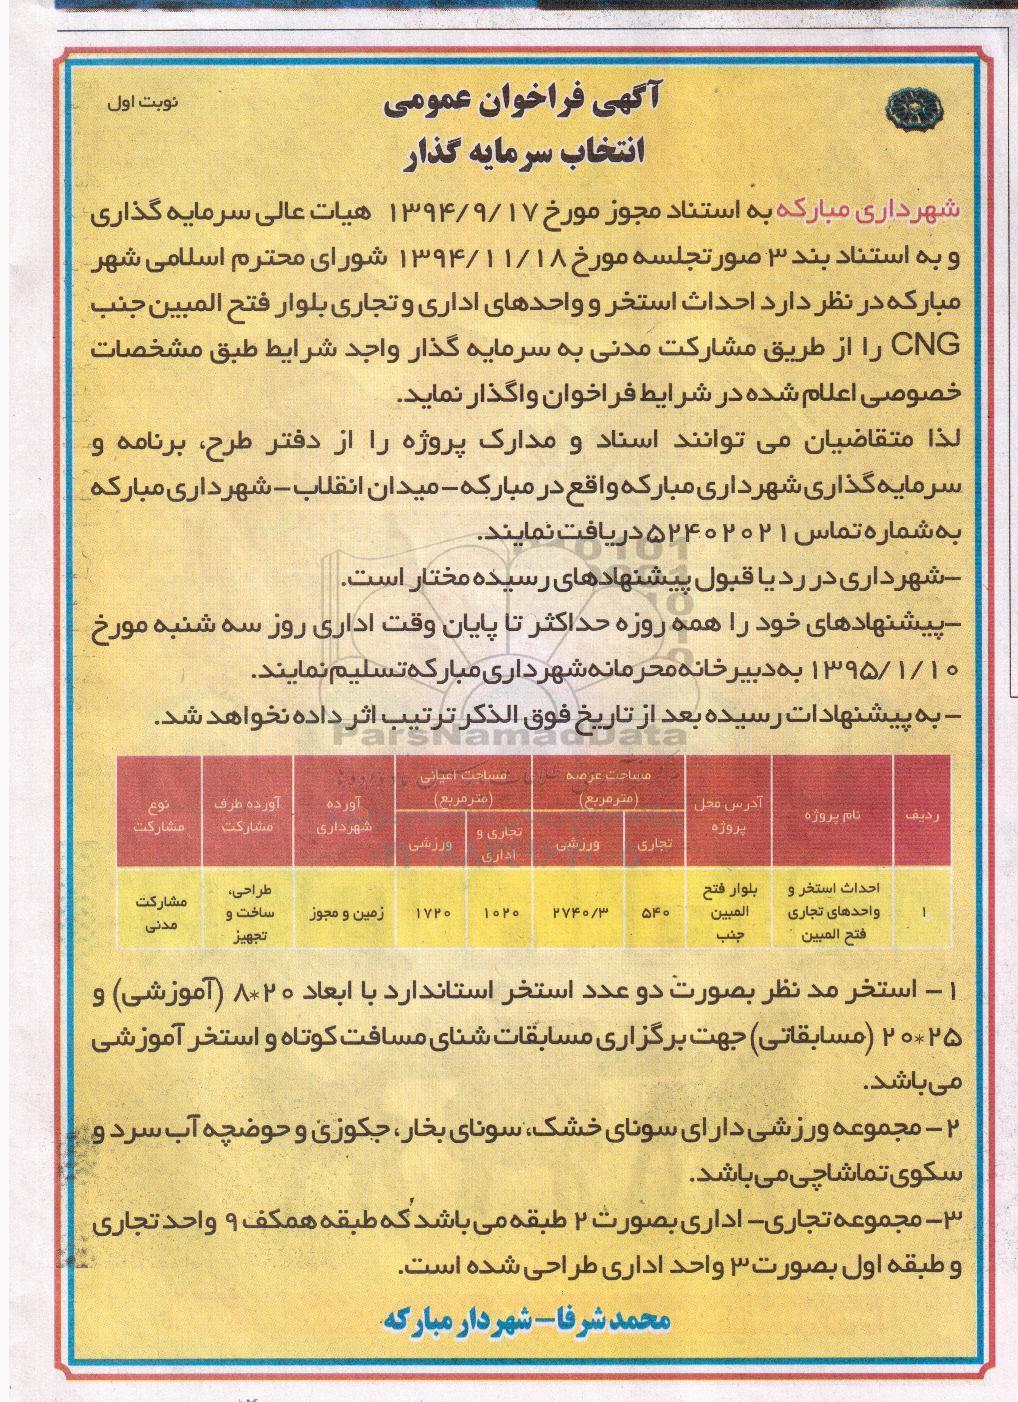 آگهی فراخوان عمومی
نوبت اول
انتخاب سرمایه گذار
شهرداری مبارکه به استناد مجوز مورخ ۱۳۹۴/۹/۱۷ هیات عالی سرمایه گذاری
و به استناد بند ۳ صورتجلسه مورخ ۱۳۹۴/۱۱/۱۸ شورای محترم اسلامی شهر
مبارکه در نظر دارد احداث استخر و واحدهای اداری و تجاری بلوار فتح المبین جنب
CNG را از طریق مشارکت مدنی به سرمایه گذار واجد شرایط طبق مشخصات
خصوصی اعلام شده در شرایط فراخوان واگذار نماید.
لذا متقاضیان می توانند اسناد و مدارک پروژه را از دفتر طرح، برنامه و
سرمایه‌گذاری شهرداری مبارکه واقع در مبارکه–میدان انقلاب–شهرداری مبارکه
به شماره تماس ۵۲۴۰۲۰۲۱ دریافت نمایند.
–شهرداری در رد یا قبول پیشنهادهای رسیده مختار است.
–پیشنهادهای خود را همه روزه حداکثر تا پایان وقت اداری روز سه شنبه مورخ
۱۳۹۵/۱/۱۰ به دبیرخانه محرمانه شهرداری مبارکه تسلیم نمایند.
– به پیشنهادات رسیده بعد از تاریخ فوق الذکر ترتیب اثر داده نخواهد شد.
ParsNamadData
ردیف
نام پروژه
آدرس محل
پروژه
مساحت عرصه
(مترمربع)
تجاری
ورزشی
مساحت اعیانی
(مترمربع)
تجاری و
اداری
ورزشی
آورده
شهرداری
آورده طرف
مشارکت
نوع
مشارکت
۱
احداث استخر و
واحدهای تجاری
فتح المبین
بلوار فتح
المبین
جنب
۵۴۰
۲۷۴۰/۳
۱۰۲۰
۱۷۲۰
زمین و مجوز
طراحی،
ساخت و
تجهیز
مشارکت
مدنی
۱– استخر مد نظر بصورت دو عدد استخر استاندارد با ابعاد ۲۰*۸ (آموزشی) و
۲۵*۲۰ (مسابقاتی) جهت برگزاری مسابقات شنای مسافت کوتاه و استخر آموزشی
می‌باشد.
۲– مجموعه ورزشی دارای سونای خشک، سونای بخار، جکوزی و حوضچه آب سرد و
سکوی تماشاچی می‌باشد.
۳– مجموعه تجاری– اداری بصورت ۲ طبقه می باشد که طبقه همکف ۹ واحد تجاری
و طبقه اول بصورت ۳ واحد اداری طراحی شده است.
محمد شرفا–شهردار مبارکه